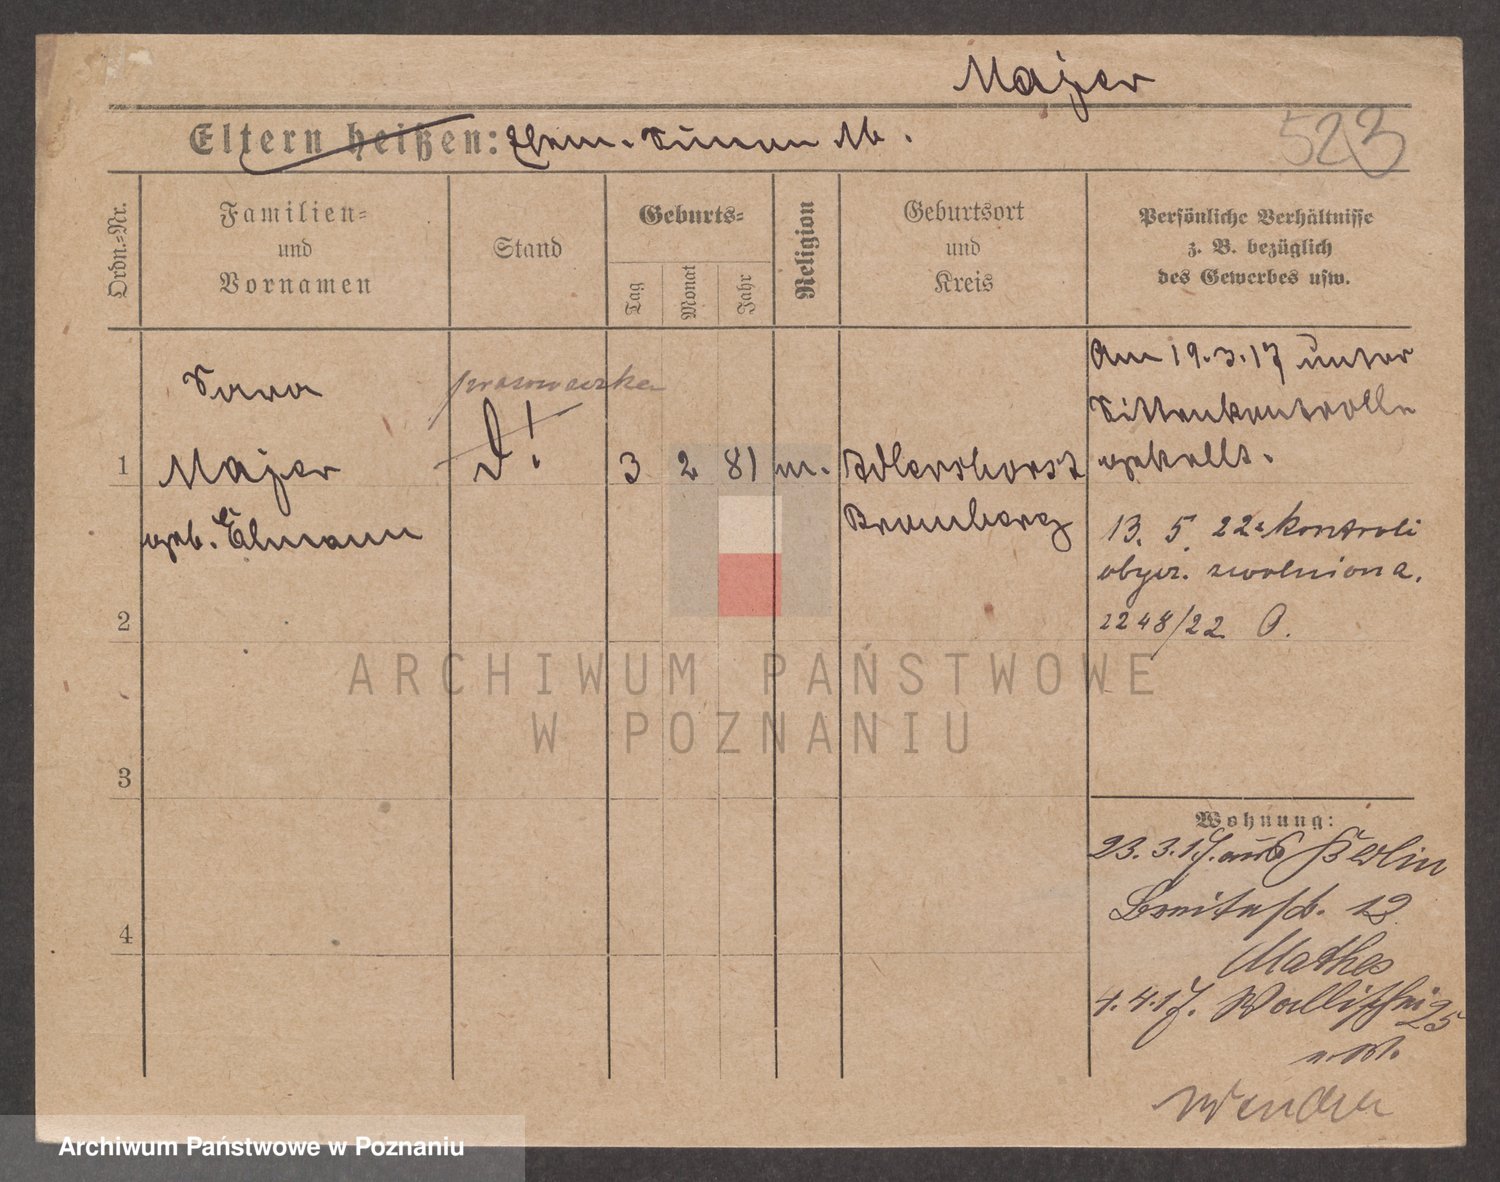 Majer
Eltern heißen: Ehem. Simon M.
523
Ordn.-Nr.
Familien-
und
Vornamen
Stand
Geburts-
Tag
Monat
Jahr
Religion
Geburtsort
und
Kreis
Persönliche Verhältnisse
z. B. bezüglich
des Gewerbes usw.
1
Sara
Majer
geb. Elmann
prasowaczka
D!
3
2
81
m.
Adlershorst
Bromberg
Am 19.3.17 unter
Sittenkontrolle
gestellt.
13. 5. 22 z kontroli
obycz. zwolniona.
2248/22
2
3
4
Wohnung:
23. 3. 17. aus Berlin
Breitestr. 12
Mathes
4. 4. 17. Wallischei 25
Wenden
ARCHIWUM PAŃSTWOWE
W POZNANIU
Archiwum Państwowe w Poznaniu